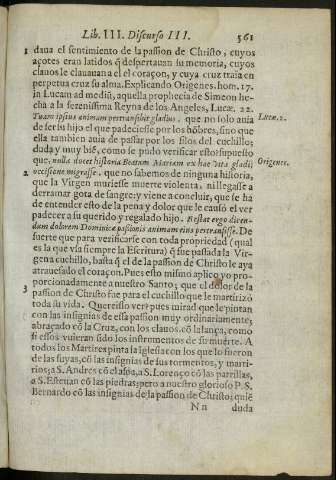 Lib. III. Discurso III. 561
1 daua el sentimiento de la passion de Christo, cuyos
açotes eran latidos q̃ despertauan su memoria, cuyos
clauos le clauauan a el el coraçon, y cuya cruz traia en
perpetua cruz su alma. Explicando Origenes. hom. 17.
in Lucam ad mediũ, aquella prophecia de Simeon he-
cha a la serenissima Reyna de los Angeles, Lucæ. 22.
Tuam ipsius animam pertransibit gladius. que no solo auia Lucæ. 2.
de ser su hijo el que padeciesse por los hõbres, sino que
ella tambien auia de passar por los filos del cuchillo;
duda y muy biẽ, como se pudo verificar esto? supuesto
que, nulla docet historia Beatam Mariam ex hac vita gladij Origenes.
2 occisione migrasse. que no sabemos de ninguna historia,
que la Virgen muriesse muerte violenta, ni llegasse a
derramar gota de sangre: y viene a concluir, que se ha
de entender esto de la pena y dolor que le causó el ver
padecer a su querido y regalado hijo. Restat ergo dicen-
dum dolorem Dominicæ passionis animam eius pertransisse. De
suerte que para verificarse con toda propriedad (qual
es la que vsa siempre la Escritura) q̃ fue passada la Vir-
gen a cuchillo, basta q̃ el de la passion de Christo le aya
atrauessado el coraçon. Pues esto mismo aplico yo pro-
porcionadamente a nuestro Santo; que el dolor de la
3 passion de Christo fue para el cuchillo que le martirizó
toda su vida. Quereisso ver? pues mirad que le pintan
con las insignias de essa passion muy ordinariamente,
abraçado cõ la Cruz, con los clauos, cõ la lança, como
si essos vuieran sido los instrumentos de su muerte. A
todos los Martires pinta la iglesia con los que lo fueron
de las suyas, cõ las insignias de sus tormentos, y marti-
rios; a S. Andres cõ el aspa, a S. Lorenço cõ las parrillas,
a S. Esteuan cõ las piedras; pero a nuestro glorioso P. S.
Bernardo cõ las insignias de la passion de Christo; quiẽ
N n duda